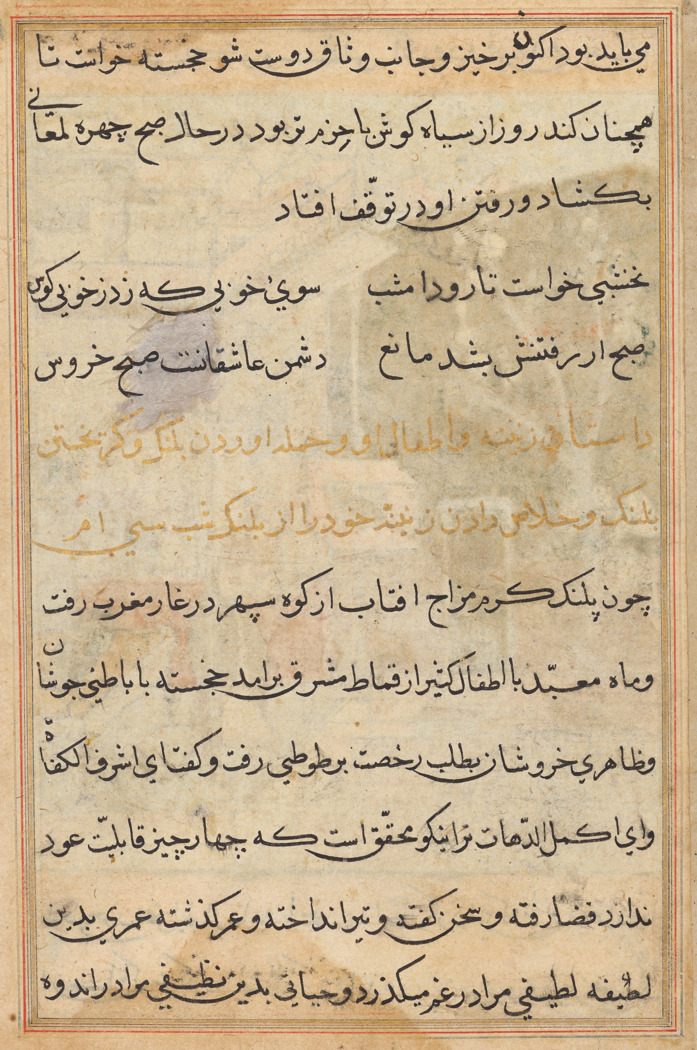 می باید بود اکنون برخیز و جانب وثاق دوست شو خجسته خواست تا
همچنان کند روز از سیاه کوش با حزم تر بود در حال صبح چهره لمعانی
بکشاد و رفتن او در توقّف افتاد
نخشبی خواست تا رود امشب سویٔ خوبی که زد ز خوبی کوس
صبح از رفتنش بشد مانع دشمن عاشقانست صبح خروس
داستان زنینه و اطفال او و حمله اوردن پلنک و کریختن
پلنک و خلاص دادن زنینه خود را از پلنک شب سی ام
چون پلنک کرم مزاج افتاب از کوه سپهر در غار مغرب رفت
و ماه معبّد با اطفال کثیر از قماط مشرق برامد خجسته با باطنی جوشان
و ظاهری خروشان بطلب رخصت بر طوطی رفت و کفت ای اشرف الکفاة
و ای اکمل الدّهات ترا نیکو محقّق است که چهار چیز قابلیّت عود
ندارد قضا رفته و سخن کفته و تیر انداخته و عمر کذشته عمری بدین
لطیفه لطیفی مرا در غم میکذرد و حیاتی بدین نظیفی مرا در اندوه